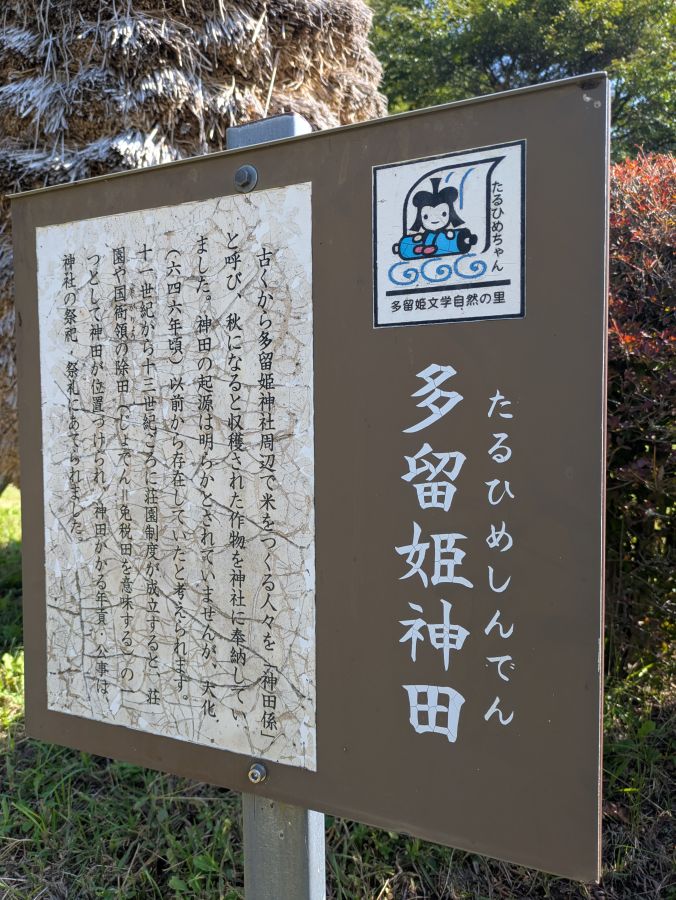 たるひめちゃん
多留姫文学自然の里
たるひめしんでん
多留姫神田
古くから多留姫神社周辺で米をつくる人々を「神田係」
と呼び、秋になると収穫された作物を神社に奉納してい
ました。神田の起源は明らかとされていませんが、大化
(六四六年頃)以前から存在していたと考えられます。
十一世紀から十三世紀ごろに荘園制度が成立すると、荘
園や国衙領の除田(じょでん=免税田を意味する)の一
つとして神田が位置づけられ、神田がかる年貢・公事は
神社の祭祀・祭礼にあてられました。